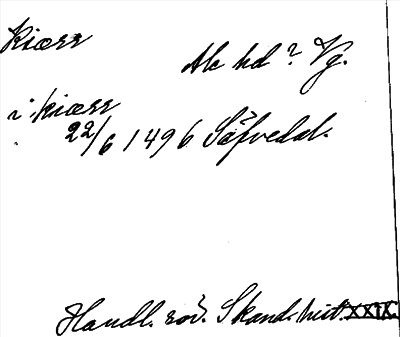 Kiærr
Ale hd? Vg.
i kiærr
22/6 1496 Säfvedal.
Handl. rör. Skand. hist. XXIX.